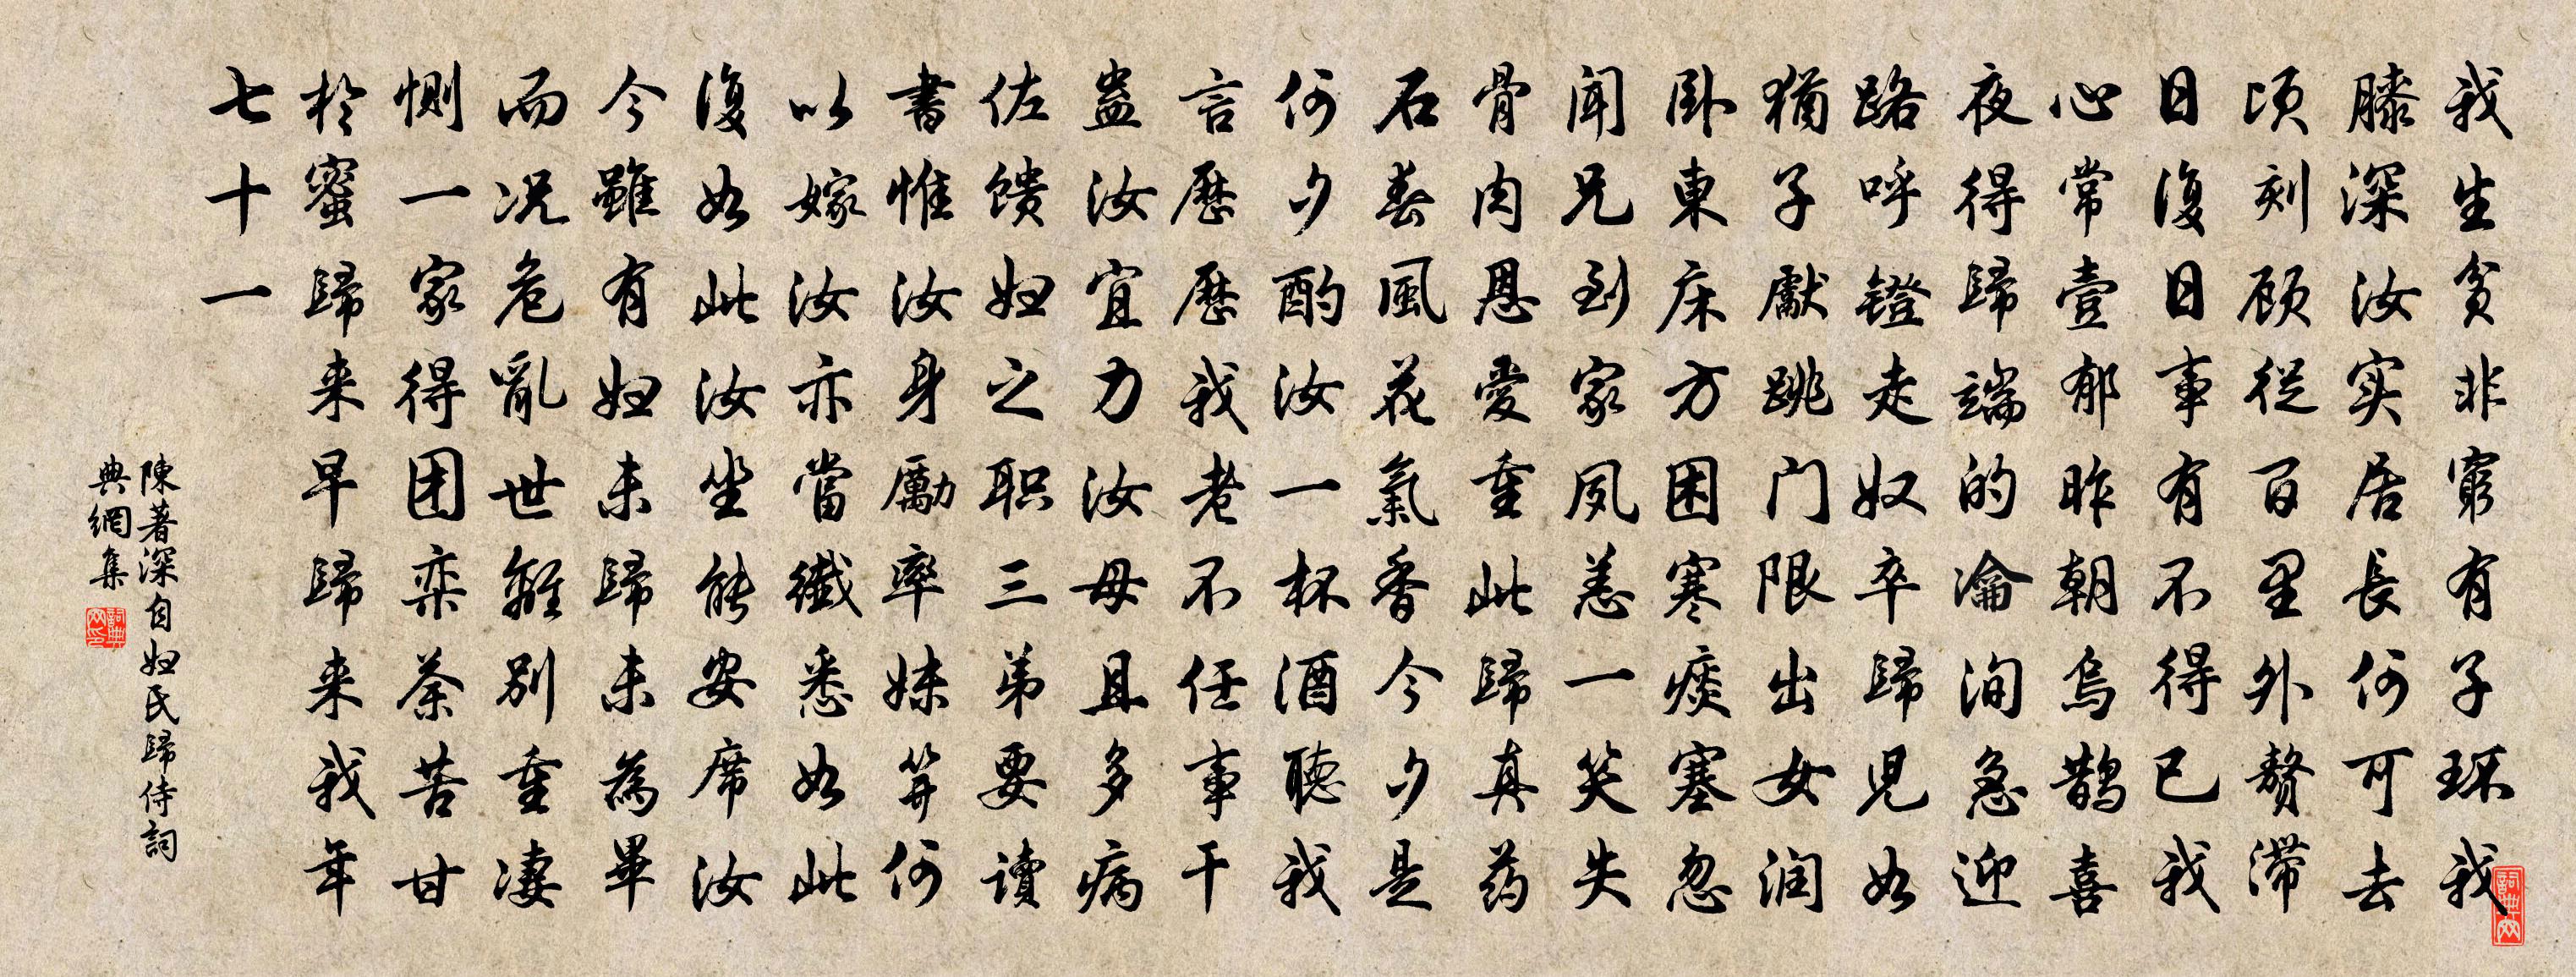 我生贫非窮有子环我
膝深汝实居長何可去
顷刻顾從百里外赘滞
日復日事有不得已我
心常壹郁昨朝烏鹊喜
夜得歸端的瀹洵急迎
路呼镫走奴卒歸児如
猶子獻跳门限出女润
卧東床方困寒痰塞忽
闻兄到家夙恙一笑失
骨肉恩愛重此歸真药
石春風花氣香今夕是
何夕酌汝一杯酒聽我
言歷歷我老不任事干
蛊汝宜力汝母且多病
佐馈妇之职三弟要读
書惟汝身勵率妹笄何
以嫁汝亦當纖悉如此
復如此汝坐能安席汝
今雖有妇未歸未為畢
而况危亂世離別重凄
惻一家得团栾荼苦甘
於蜜歸来早歸来我年
七十一
陳著深自妇氏歸侍詞
典網集
詞典网
詞典网印